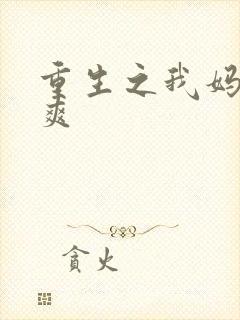 重生之我妈
爽
贪火